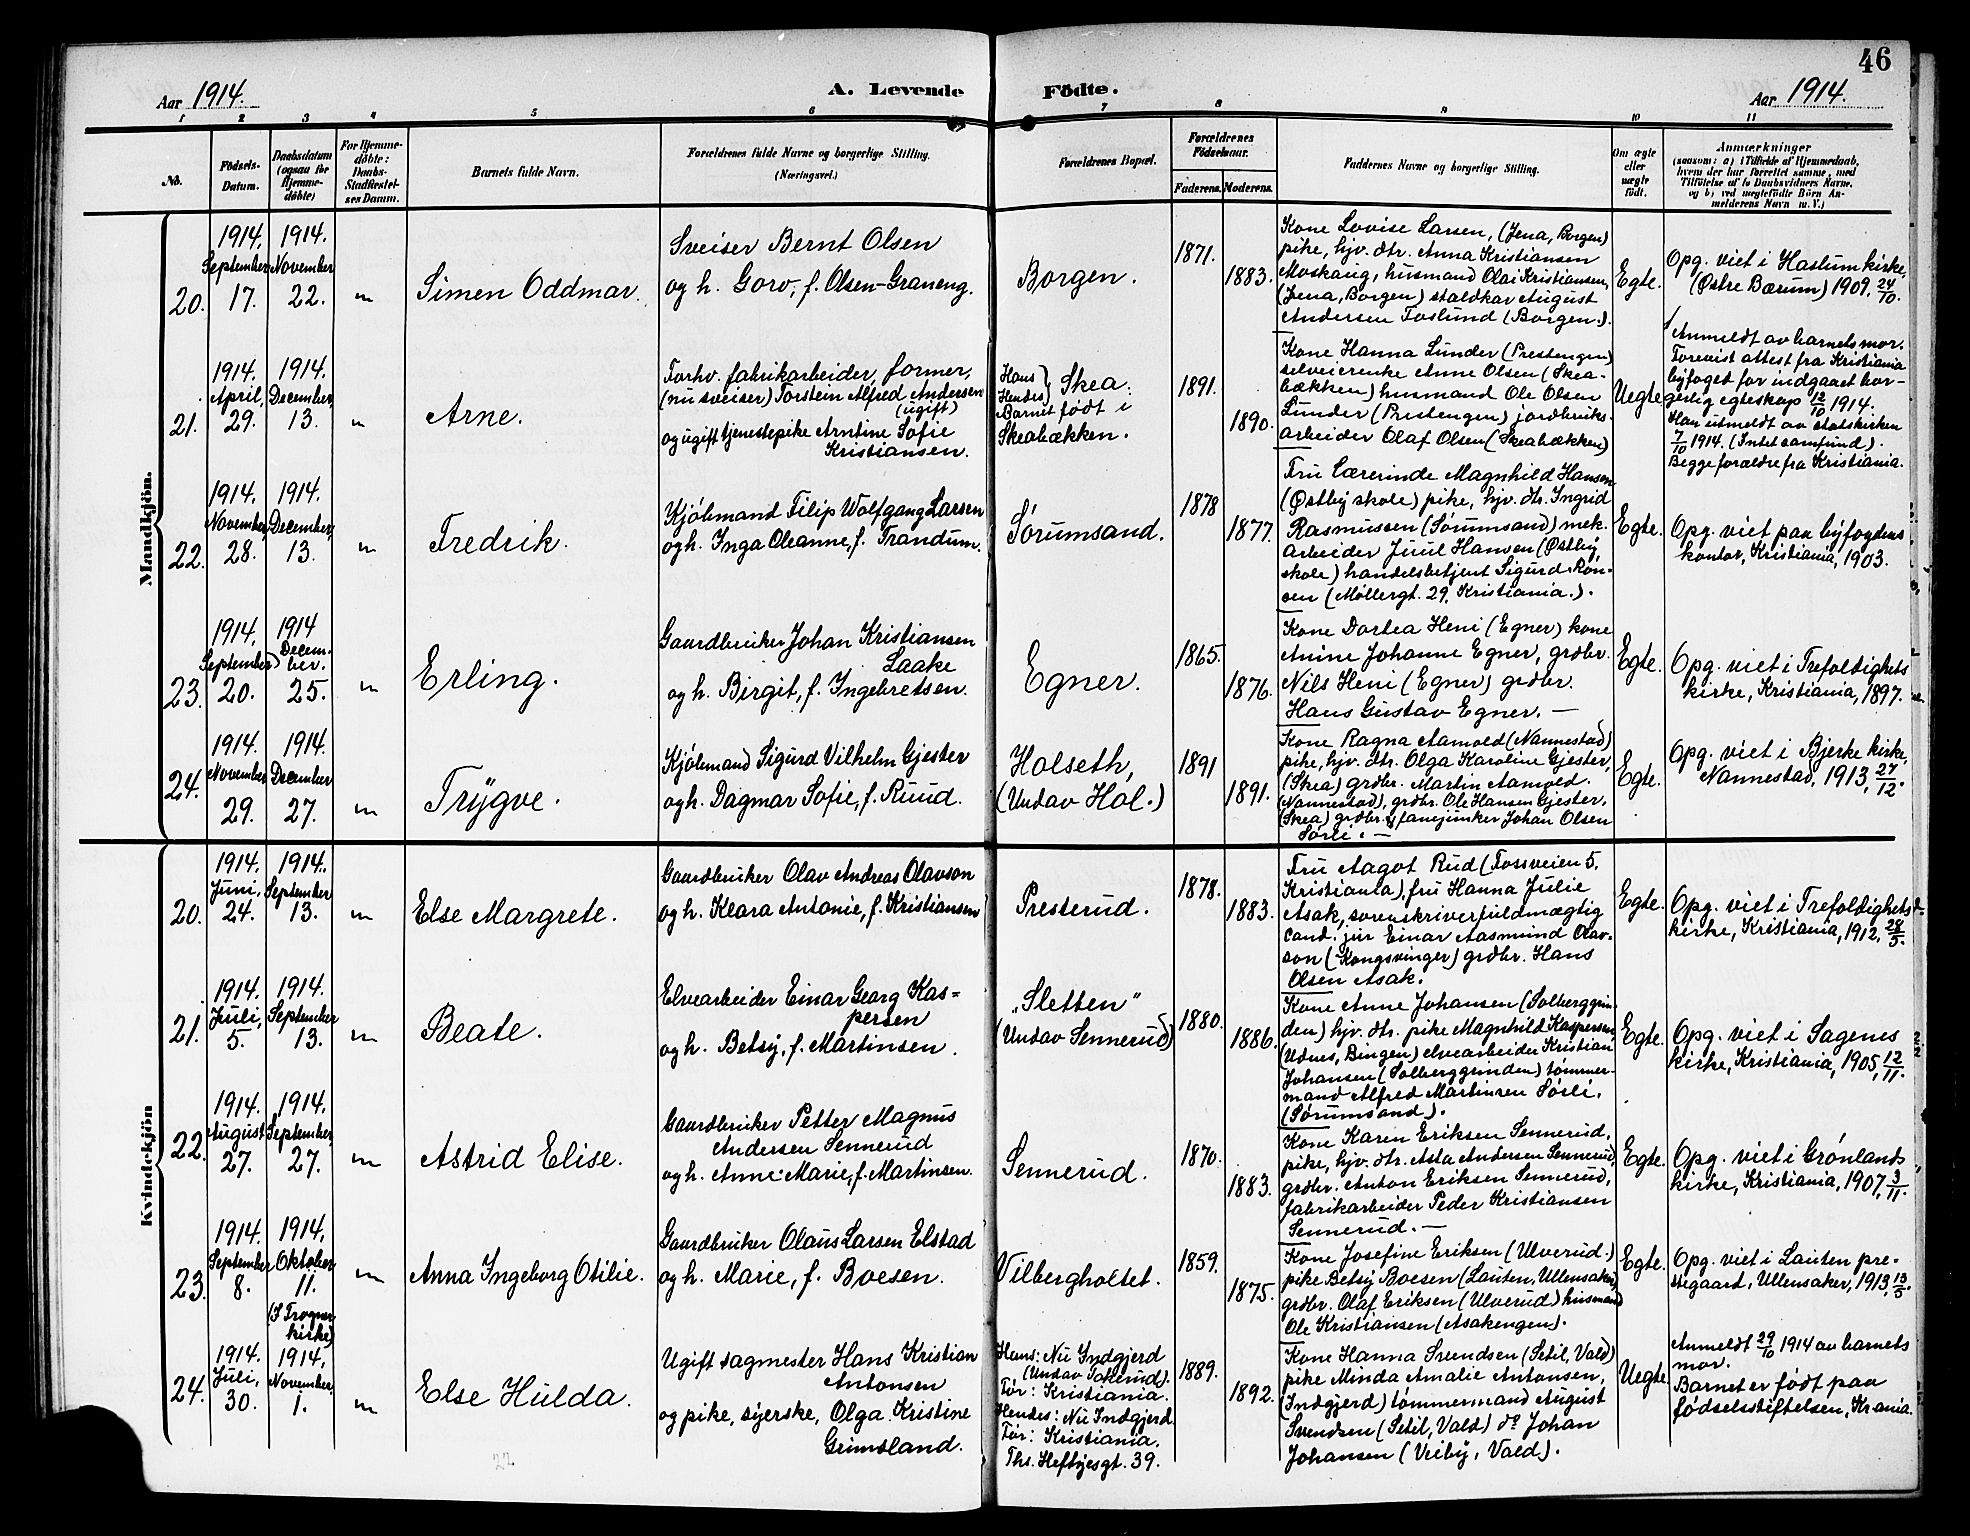 46
Aar 1914.
A. Levende Fødte.
Aar 1914.
1 2 3 4 5 6 7 8 9 10 11
No.
Födsels-Datum.
Daabsdatum (ogsaa for Hjemmedöbte)
For Hjemmedöbte: Daabs-Stadfæstelses Datum.
Barnets fulde Navn.
Forældrenes fulde Navne og borgerlige Stilling. (Næringsvei.)
Forældrenes Bopæl.
Forældrenes Födselsaar.
Faderens. Moderens.
Faddernes Navne og borgerlige Stilling.
Om ægte eller uægte födt.
Anmærkninger
(saasom: a) i Tilfælde af Hjemmedaab,
hvem der har forrettet samme, med
Tilføielse af to Daabsvidners Navne,
og b) ved uegtefödte Börn An-
melderens Navn m. V.)
Mandkjön.
20.
1914. September 17.
1914. November 22.
Simen Oddmar.
Sveiser Bernt Olsen
og h. Goro, f. Olsen-Graneng.
Borgen.
1871.
1883.
Kone Lovise Larsen, (Jena, Borgen)
pike, hjv. dtr. Anna Kristiansen
Moskaug, husmand Olai Kristiansen,
(Jena, Borgen) staldkar August
Andersen Foslund (Borgen.).
Egte.
Opg. viet i Haslum kirke,
(Østre Bærum) 1909, 24/10.
21.
1914. April, 29.
1914. December, 13.
Arne.
Forhv. fabrikarbeider, former,
(nu sveiser) Torstein Alfred Andersen
(ugift)
og ugift tjenestepike Arntine Sofie
Kristiansen.
Hans Hendes } Skea.
Barnet født i
Skeabækken.
1891.
1890.
Kone Hanna Lunder (Prestengen)
selveierenke Anne Olsen (Skea-
bækken) husmand Ole Olsen
Lunder (Prestengen) jordbruks-
arbeider Olaf Olsen (Skeabækken)
Uegte.
Anmeldt av barnets mor.
Forevist attest fra Kristiania
byfoged for indgaaet bor-
gerlig egteskap 12/10 1914.
Han utmeldt av statskirken
7/10 1914. (Intet samfund).
Begge forældre fra Kristiania.
22.
1914. November, 28.
1914. December, 13.
Fredrik.
Kjøbmand Filip Wolfgang Larsen
og h. Inga Oleanne, f. Trandum.
Sørumsand.
1878
1877.
Fru lærerinde Magnhild Hansen
(Østby skole) pike, hjv. dtr. Ingrid
Rasmussen (Sørumsand) mek.
arbeider Juul Hansen (Østby
skole) handelsbetjent Sigurd Røn-
sen (Møllergt. 29, Kristiania.).
Egte.
Opg. viet paa byfogdens
kontor, Kristiania, 1903.
23.
1914. September 20.
1914 December. 25.
Erling.
Gaardbruker Johan Kristiansen
Laake
og h. Birgit, f. Ingebretsen.
Egner.
1865.
1876.
Kone Dortea Heni (Egner) kone
Anine Johanne Egner, grdbr.
Nils Heni (Egner) grdbr.
Hans Gustav Egner. —
Egte.
Opg. viet i Trefoldighets
kirke, Kristiania, 1897.
24.
1914. November 29.
1914. December 27.
Trygve.
Kjøbmand Sigurd Vilhelm Gjester
og h. Dagmar Sofie, f. Ruud.
Holseth,
(Undav Hol.)
1891
1891.
Kone Ragna Aamold (Nannestad)
pike, hjv. dtr. Olga Karoline Gjester,
(Skea) grdbr. Martin Aamold.
(Nannestad), grdbr. Ole Hansen Gjester,
(Skea) grdbr. & fanejunker Johan Olsen
Sørli. —
Egte.
Opg. viet i Bjerke kirke,
Nannestad, 1913, 27/12.
Kvindekjön
20.
1914. Juni, 24.
1914. September 13.
Else Margrete.
Gaardbruker Olav Andreas Olavson
og h. Klara Antonie, f. Kristiansen
Presterud.
1878.
1883.
Fru Aagot Rud (Fossveien 5,
Kristiania), fru Hanna Julie
Asak, sorenskriverfuldmægtig
cand. jur Einar Aasmund Olav-
son (Kongsvinger) grdbr. Hans
Olsen Asak.
Egte.
Opg. viet i Trefoldighets-
kirke, Kristiania, 1912, 28/5.
21.
1914. Juli, 5.
1914. September 13.
Beate.
Elvearbeider Einar Georg Kas=
persen
og h. Betsy, f. Martinsen.
„Sletten"
(Undav Sennerud)
1880.
1886.
Kone Anne Johansen (Solberggrin-
den) hjv. dtr. pike Magnhild Kaspersen
(Udnes, Bingen) elvearbeider Kristian
Johansen (Solberggrinden) tømmer-
mand Alfred Martinsen Sørli,
(Sørumsand).
Egte.
Opg. viet i Sagenes
kirke, Kristiania, 1905, 12/11.
22.
1914. August 27.
1914. September 27.
Astrid Elise.
Gaardbruker Petter Magnus
Andersen Sennerud
og h. Anne Marie, f. Martinsen.
Sennerud.
1870.
1883.
Kone Karen Eriksen Sennerud,
pike, hjv. dtr. Asta Andersen Sennerud,
grdbr. Anton Eriksen Sennerud,
fabrikarbeider Peder Kristiansen
Sennerud. —
Egte.
Opg. viet i Grønlands
kirke, Kristiania, 1907, 3/11.
23.
1914. September 8.
1914, Oktober 11.
(I Frogner kirke)
Anna Ingeborg Otilie.
Gaardbruker Olaus Larsen Elstad
og h. Marie, f. Boesen.
Vilbergholtet.
1859.
1875.
Kone Josefine Eriksen (Ulverud.)
pike Betsy Boesen (Lauten, Ullensaker)
grdbr. Olaf Eriksen (Ulverud) husmand
Ole Kristiansen (Asakengen).
Egte.
Opg. viet i Lauten pre-
stegaard, Ullensaker, 1913, 13/5.
24.
1914. Juli, 30.
1914, November, 1.
Else Hulda.
Ugift sagmester Hans Kristian
Antonsen
og pike, syerske, Olga Kristine
Grimsland.
Hans: Nu Indgjerd
(Undav Sakerud).
Før: Kristiania.
Hendes: Nu Indgjerd
Før: Kristiania.
Ths. Heftyesgt. 39.
1889.
1892.
Kone Hanna Svendsen (Setil, Vald)
pike Minda Amalie Antonsen,
(Indgjerd) tømmermand August
Svendsen (Setil, Vald) do Johan
Johansen (Veiby, Vald).
Uegte
Anmeldt 29/10 1914 av barnets
mor.
Barnet er født paa
fødselsstiftelsen, Krania.
22